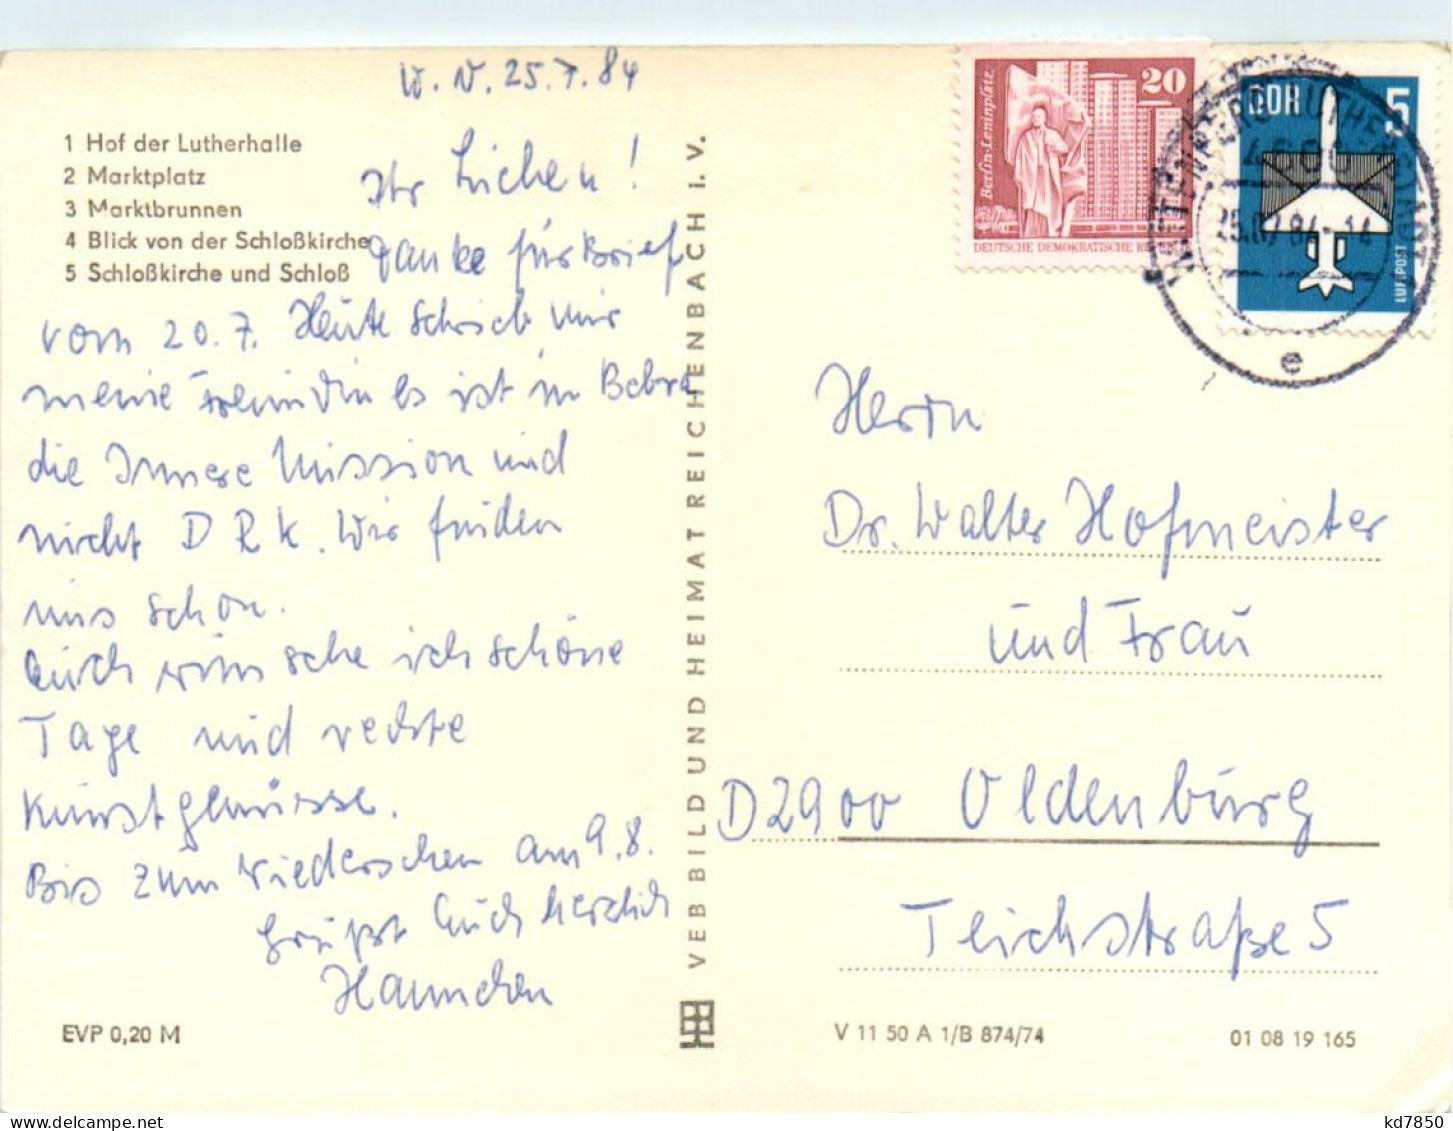 W. D. 25.7.84
1 Hof der Lutherhalle
2 Marktplatz
3 Marktbrunnen
4 Blick von der Schloßkirche
5 Schloßkirche und Schloß
Ihr Lieben!
Danke für Brief
vom 20.7. Heute schrieb mir
meine Freundin es ist in Bebra
die Innere Mission und
nicht DRK. Wir finden
uns schon.
Euch wünsche ich schöne
Tage und rechte
Kunstgenüsse.
Bis zum Wiedersehen am 9.8.
grüßt Euch herzlich
Hannchen
EVP 0,20 M
VEB BILD UND HEIMAT REICHENBACH i. V.
Berlin-Leninplatz
20
DEUTSCHE DEMOKRATISCHE RE
DDR
5
LUFTPOST
WITTENBERG LUTHERSTADT
4600
25.07.84-14
e
Herrn
Dr. Walter Hofmeister
und Frau
D2900 Oldenburg
Teichstraße 5
V 11 50 A 1/B 874/74
01 08 19 165
kd7850